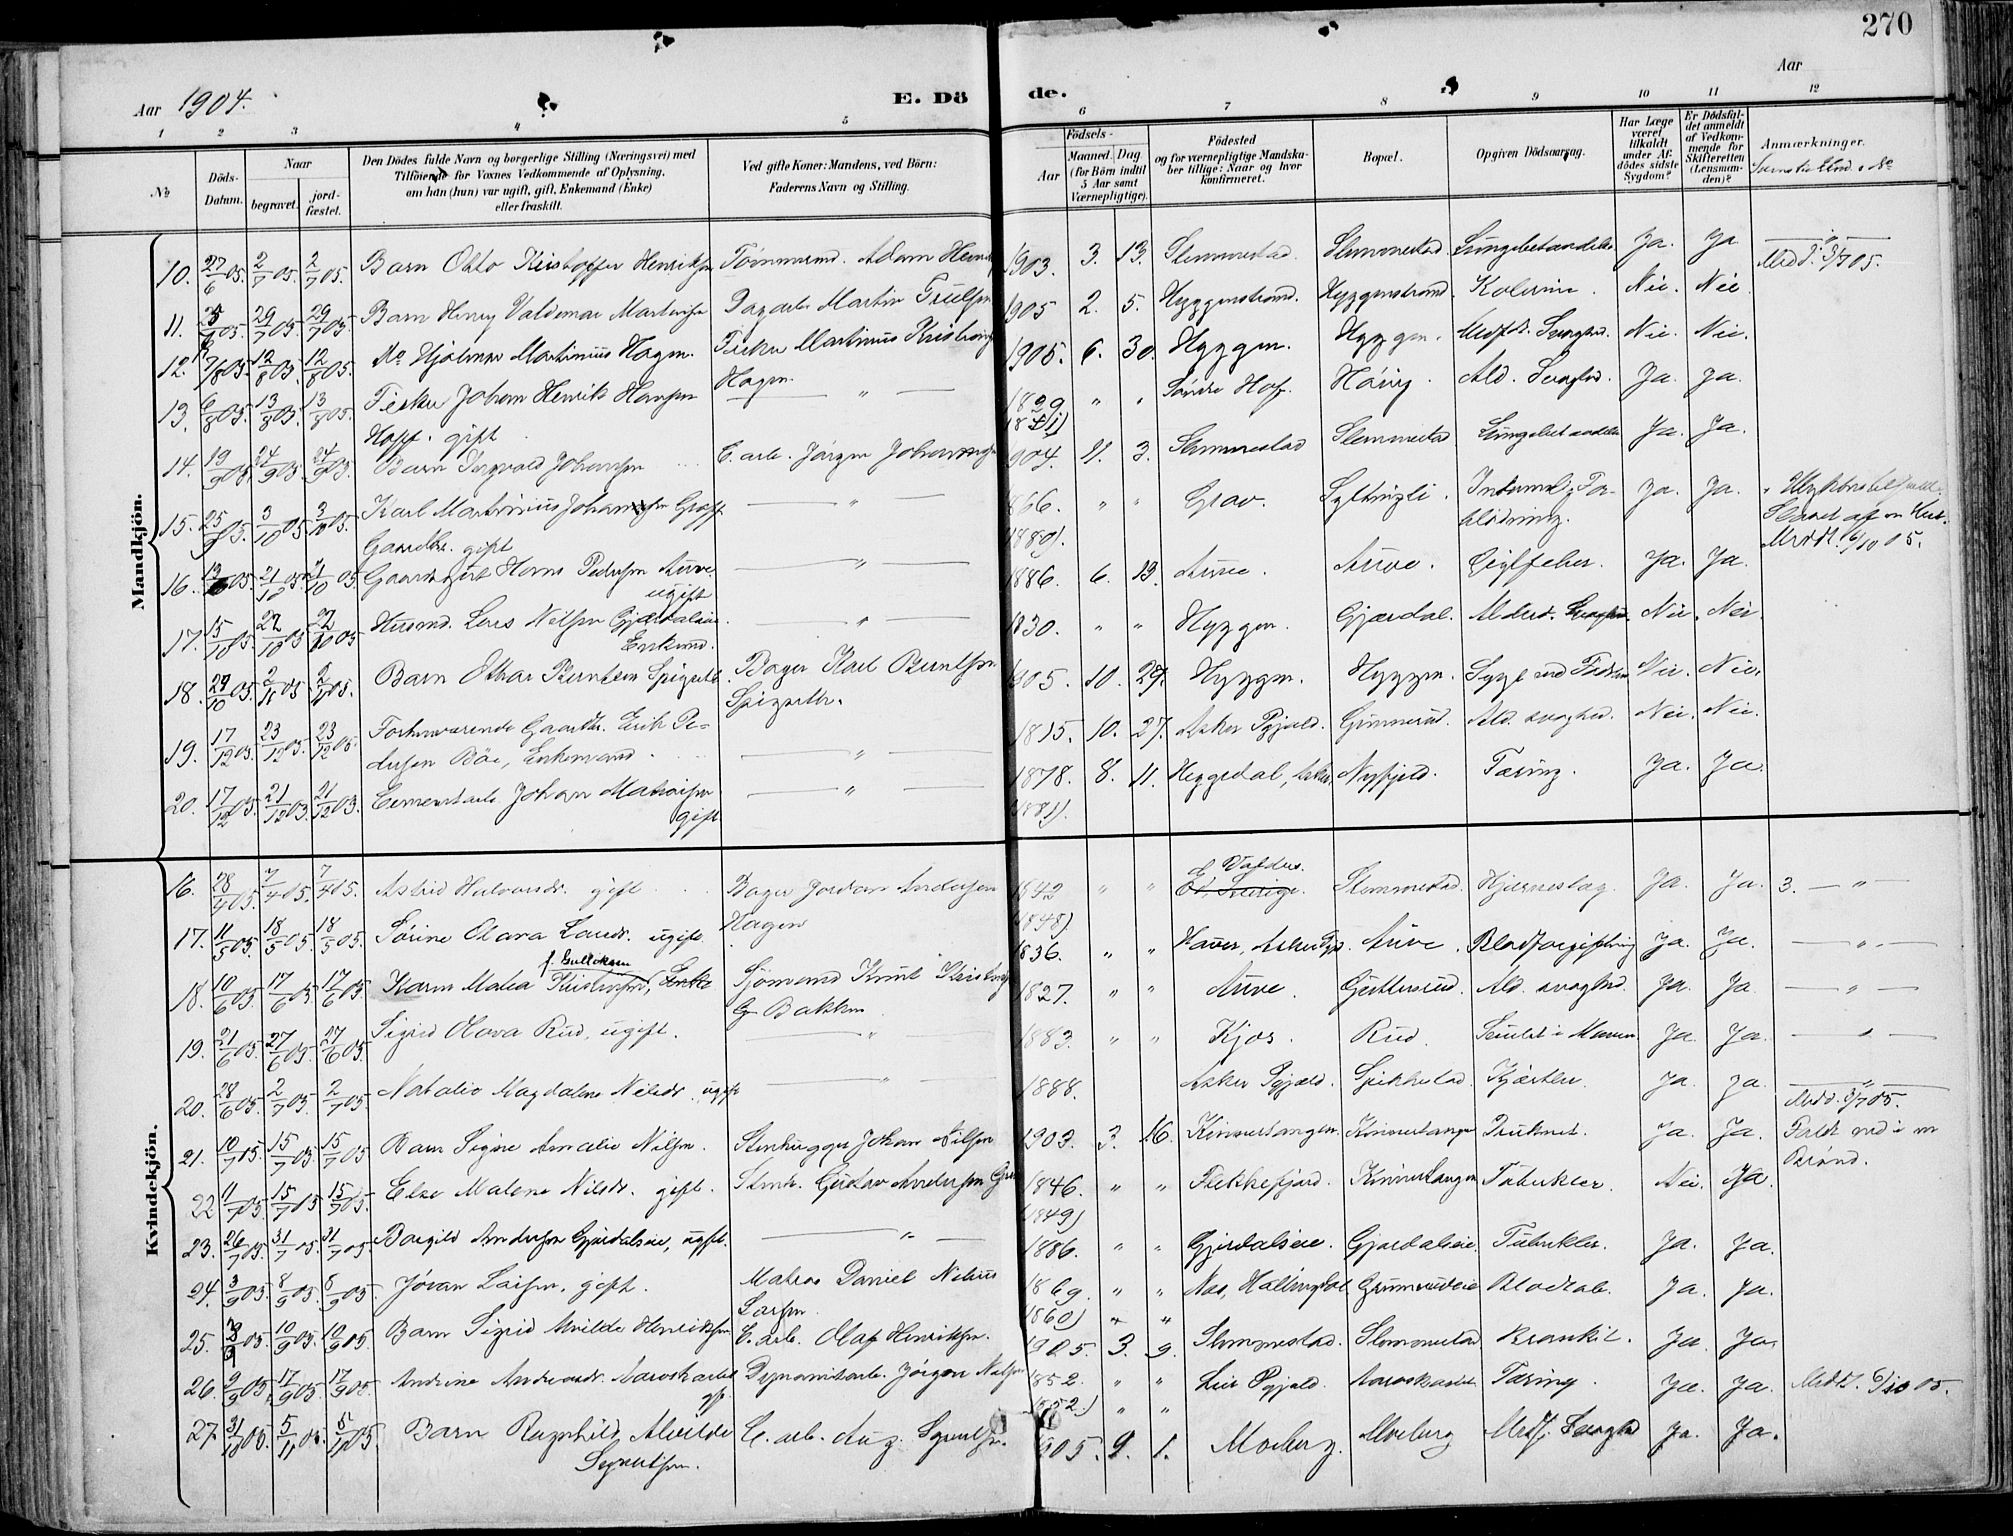 270
Aar 1904.
E. Döde.
Aar
1 2 3 4 5 6 7 8 9 10 11 12
No
Döds-Datum.
Naar
begravet.
jordfæstet.
Den Dödes fulde Navn og borgerlige Stilling (Næringsvei) med
Tilföiende for Voxnes Vedkommende af Oplysning,
om han (hun) var ugift, gift, Enkemand (Enke)
eller fraskilt.
Ved gifte Koner: Mandens, ved Börn:
Faderens Navn og Stilling.
Födsels-
Aar
Maaned. Dag
(for Börn indtil
5 Aar samt
Værnepligtige).
Födested
og for værnepligtige Mandskaber tillige: Naar og hvor
konfirmeret.
Bopæl.
Opgiven Dödsaarsag.
Har Læge
været
tilkaldt
under Afdödes sidste
Sygdom?
Er Dödsfaldet anmeldt
af Vedkommende for
Skifteretten
(Lensmanden)?
Anmærkninger.
Mandkjön.
10. 27/6 05. 2/7 05. 2/7 05. Barn Otto Kristoffer Henriksen Tömmermd. Adam 1903. 3. 13. Slemmestad. Slemmestad Lungebetændelse Ja. Ja Medd. 3/7 05.
11. 29/7 05. 29/7 05. Barn Henry Valdemar Martinsen Dagarb. Martin Trulsen 1905 2. 5. Hyggenstrand. Hyggenstrand. Kolerine. Nei. Nei.
12. 7/8 05. 12/8 05. 12/8 05. Do Hjalmar Martinius Hagen. Fisker Martinius Kristians 1905. 6. 30. Hyggen. Hyggen. Medf. Svaghed. Nei. Nei.
Hagen.
13. 6/8 05. 13/8 05. 13/8 05. Fisker Johan Henrik Hansen — " — 1829 " " Söndre Hof. Höing. Ald. Svaghed. Ja. Ja.
Hoff. gift
14. 19/9 05. 24/9 05. 24/9 05. Barn Ingvald Johansen C. arb. Jörgen Johannes 904. 11. 3. Slemmestad Slemmestad Lungebetændelse Ja. Ja.
15. 25/9 05. 3/10 05. 3/10 05. Karl Martinius — " — 866. " " Grav. Indvendig For- Ja. Ja.
Gaardbr. gift 1889). blödning. Slaaet af en Hest.
Meddt. 6/10 05.
16. 21/10 05. 21/10 05. Hans Pedersen Auve. — " — 1886. 6. 13. Auve. Auve. Gigtfeber. Ja. Ja.
ugift
17. 15/10 05. 22/10 05. 22/10 05. Husmd. Lars Nilsen Gjærdalseie. — " — 1830. " " Hyggen. Gjærdal. Alderd. Svaghed. Nei. Nei.
Enkmd.
18. 29/10 05. 2/11 05. 2/11 05. Barn Othar Berntsen Spigseth Bager Karl Berntsen 905. 10. 29. Hyggen. Hyggen. Nei. Nei.
19. 17/12 05. 23/12 05. 23/12 05. Forhenværende Gaardbr. Erik Pe- — " — 1815. 10. 27. Asker Pgjæld. Gunnerud. Ald. svaghed. Nei. Nei.
dersen Böe, Enkemand.
20. 17/12 05. 21/12 05. 21/12 05. Cementarb. Johan Mathisen — " — 1878. 8. 11. Heggedal, Asker. Nyfjeld. Tæring. Ja. Ja.
gift 1881).
Kvindekjön.
16. 28/4 05. 7/4 05. 7/4 05. Astrid Halvorsdr. gift Bager Jordan Andersen 1842 " " Valdres. Slemmestad. Hjerneslag. Ja. Ja. 3. — " —
Hagen 1848)
17. 11/5 05. 18/5 05. 18/5 05. Sörine Olava Larsdr. ugift 1836. " " Auve. Blodforgiftning Ja. Ja. — " —
f. Gulliksen
18. 10/6 05. 17/6 05. 17/6 05. Karen Malea Kristiansen, Enke Sjömand Knut 1827. " " Auve. Gullerud. Ald. svaghed. Ja. Ja — " —
G Bakken
19. 21/6 05. 27/6 05. 27/6 05. Sigrid Olava Rud, ugift. — " — 1883. " " Kjos. Rud. Ja. Ja. — " —
20. 28/6 05. 2/7 05. 2/7 05. Natalie Magdalene Nilsdr. ugift — " — 1888. Asker Pgjæld. Spikkestad. Hjertefeil Ja. Ja. Medd. 3/7 05.
21. 10/7 05. 15/7 05. 15/7 05. Barn Signe Amalie Nilsen. Stenhugger Johan Nilsen 1903. 3. 16. Kinnertangen. Kinnertangen Druknet. Ja. Ja. Faldt ned i en
Brönd.
22 11/7 05. 15/7 05. 15/7 05. Else Malene Nilsdr. gift. Stenh. Gustav Andersen 1846. " " Flekkefjord. Kinnertangen Tuberkler. Nei. Ja.
1849)
23. 26/7 05. 31/7 05. 31/7 05. Borgild Andersen Gjærdalseie, ugift. — " — 1886. " " Gjerdalseie. Gjærdalseie. Tuberkler. Ja. Ja.
24. 3/9 05. 8/9 05. 8/9 05. Jöran Larsen, gift. Matros Daniel Nilius 1869. " " Nes, Hallingdal Grimsrudeie Blodtab. Ja. Ja.
Larsen. 1860)
25. 10/9 05. 10/9 05. Barn Sigrid Alvilde Henriksen C. arb. Olaf Henriksen. 1905. 3. 9. Slemmestad. Slemmestad Bronkit. Ja. Ja.
26. 9/9 05. 17/9 05. 17/9 05. Andrine Andreasdr. Dynamitarb. Jörgen Nilsen 1852. " " Lier Pgjæld. Tæring. Ja. Ja. Meddt. 6/10 05.
27. 31/10 05. 5/11 05. 5/11 05. Barn Ragnhild Alvilde C. arb. Aug. Syvertsen. 905. 9. 1. Morberg. Morberg Medf. Svaghed Ja. Ja.
Syvertsen.